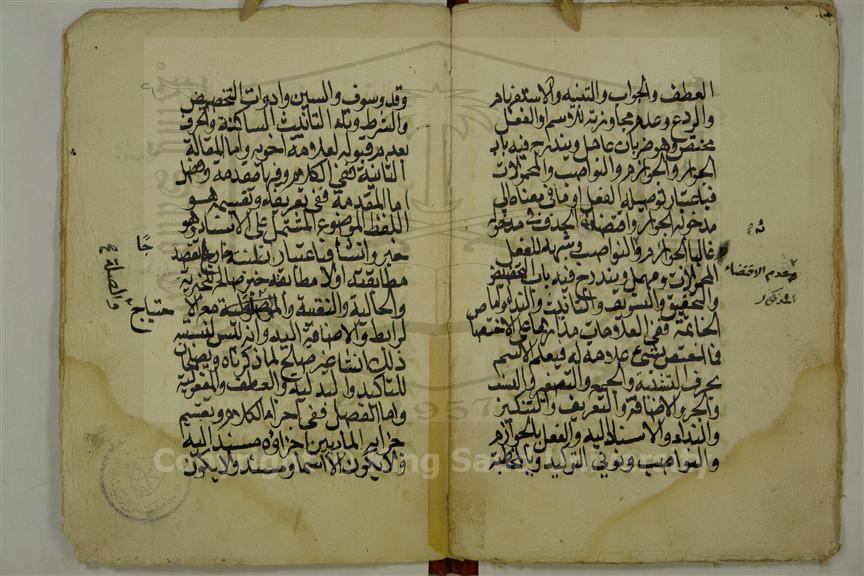 العطف والجواب والتنبيه والاستفهام
والردع وعدم مجاوزته للاسم والفعل
مختص وهو ضربان عامل ويندرج فيه باب
الجوار والجوازم والنواصب والمحمولات
فباعتبار توصيله لفعل او ما في معناه الى
مدخوله الجوار واقتضائه الحدث في مدخوله
غالبا الجوازم والنواصب وشبهه للفعل
المحمولات ومهمل ويندرج فيه باب التخصيص
والتحقيق والتعريف والتانيث والنداء واما
الخاتمة ففي العلامات مدارها على الاختصاص
فالمختص بشيء علامة له فيعلم الاسم
بحرف التثنية والجمع والتصغير والنسب
والجر والاضافة والتعريف والتنكير
والنداء والاسناد اليه والفعل بالجوازم
والنواصب ونوني التوكيد وياء المخاطبة
وعدم الاقتضاء
وقد وسوف والسين وادوات التخصيص
والشرط وتاء التانيث الساكنة والحرف
بعدم قبوله لعلامة اخويه واما المقالة
الثانية ففي الكلام وفيها مقدمة وفصل
اما المقدمة ففي تعريفه وتقسيمه هو
اللفظ الموضوع المشتمل على الاسناد وهو
خبر وانشا فباعتبار
مطابقته او لا مطابقته خبر صالح للخبرية
والحالية والنعتية
لرابط والاضافة اليه وانه ليس لنسبته
ذلك انشا غير صالح لما ذكرناه ويصلحان
للتاكيد والبدلية والعطف والمفعولية
واما الفصل ففي اجزاء الكلام وتقسيم
جزاءيه الماريين اجزاؤه مسند اليه
ولا يكون الا اسما ومسند ولا يكون
حتياج
والصلة
Copyright © King Saud University
1957